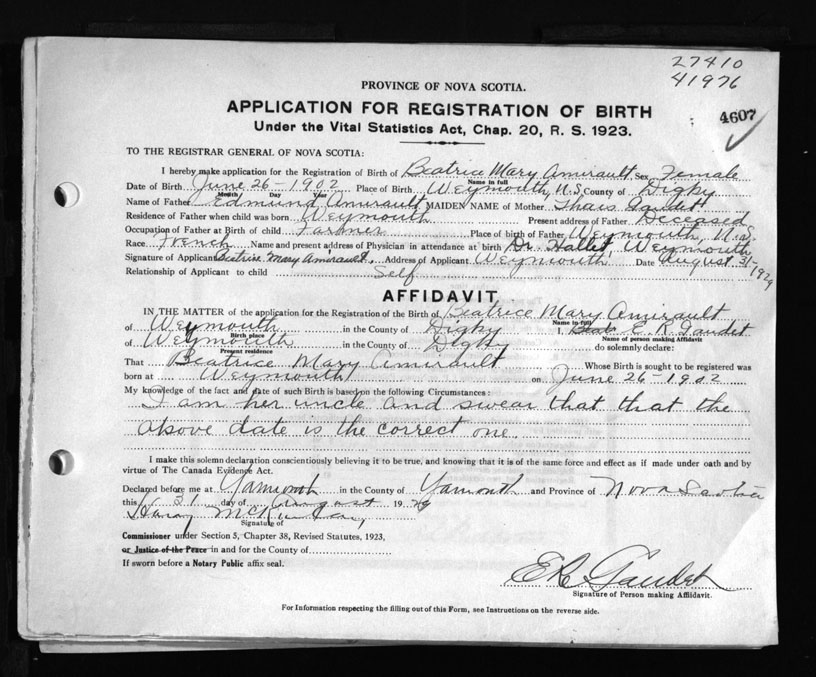 27410
41976
4607
PROVINCE OF NOVA SCOTIA.
APPLICATION FOR REGISTRATION OF BIRTH
Under the Vital Statistics Act, Chap. 20, R. S. 1923.
TO THE REGISTRAR GENERAL OF NOVA SCOTIA:
I hereby make application for the Registration of Birth of Beatrice Mary Amirault Sex Female
Name in full
Date of Birth June 26 - 1902 Place of Birth Weymouth, N.S. County of Digby
Month Day Year
Name of Father Edmund Amirault MAIDEN NAME of Mother Thais Gaudet
Residence of Father when child was born Weymouth Present address of Father Deceased
Occupation of Father at Birth of child Farmer Place of birth of Father Weymouth, N.S.
Race French Name and present address of Physician in attendance at birth Dr. Hallet, Weymouth
Signature of Applicant Beatrice Mary Amirault. Address of Applicant Weymouth Date August 31-1929
Relationship of Applicant to child Self
AFFIDAVIT
IN THE MATTER of the application for the Registration of the Birth of Beatrice Mary Amirault
Name in full
of Weymouth in the County of Digby I, E. R. Gaudet
Birth place Name of person making Affidavit
of Weymouth in the County of Digby do solemnly declare:
Present residence
That Beatrice Mary Amirault Whose Birth is sought to be registered was
born at Weymouth on June 26-1902
My knowledge of the fact and date of such Birth is based on the following Circumstances:
I am her uncle and swear that that the
above date is the correct one.
I make this solemn declaration conscientiously believing it to be true, and knowing that it is of the same force and effect as if made under oath and by
virtue of The Canada Evidence Act.
Declared before me at Yarmouth in the County of Yarmouth and Province of Nova Scotia
this 31 day of August 1929
Signature of
Commissioner under Section 5, Chapter 38, Revised Statutes, 1923,
or Justice of the Peace in and for the County of
If sworn before a Notary Public affix seal.
E R Gaudet
Signature of Person making Affidavit.
For Information respecting the filling out of this Form, see Instructions on the reverse side.